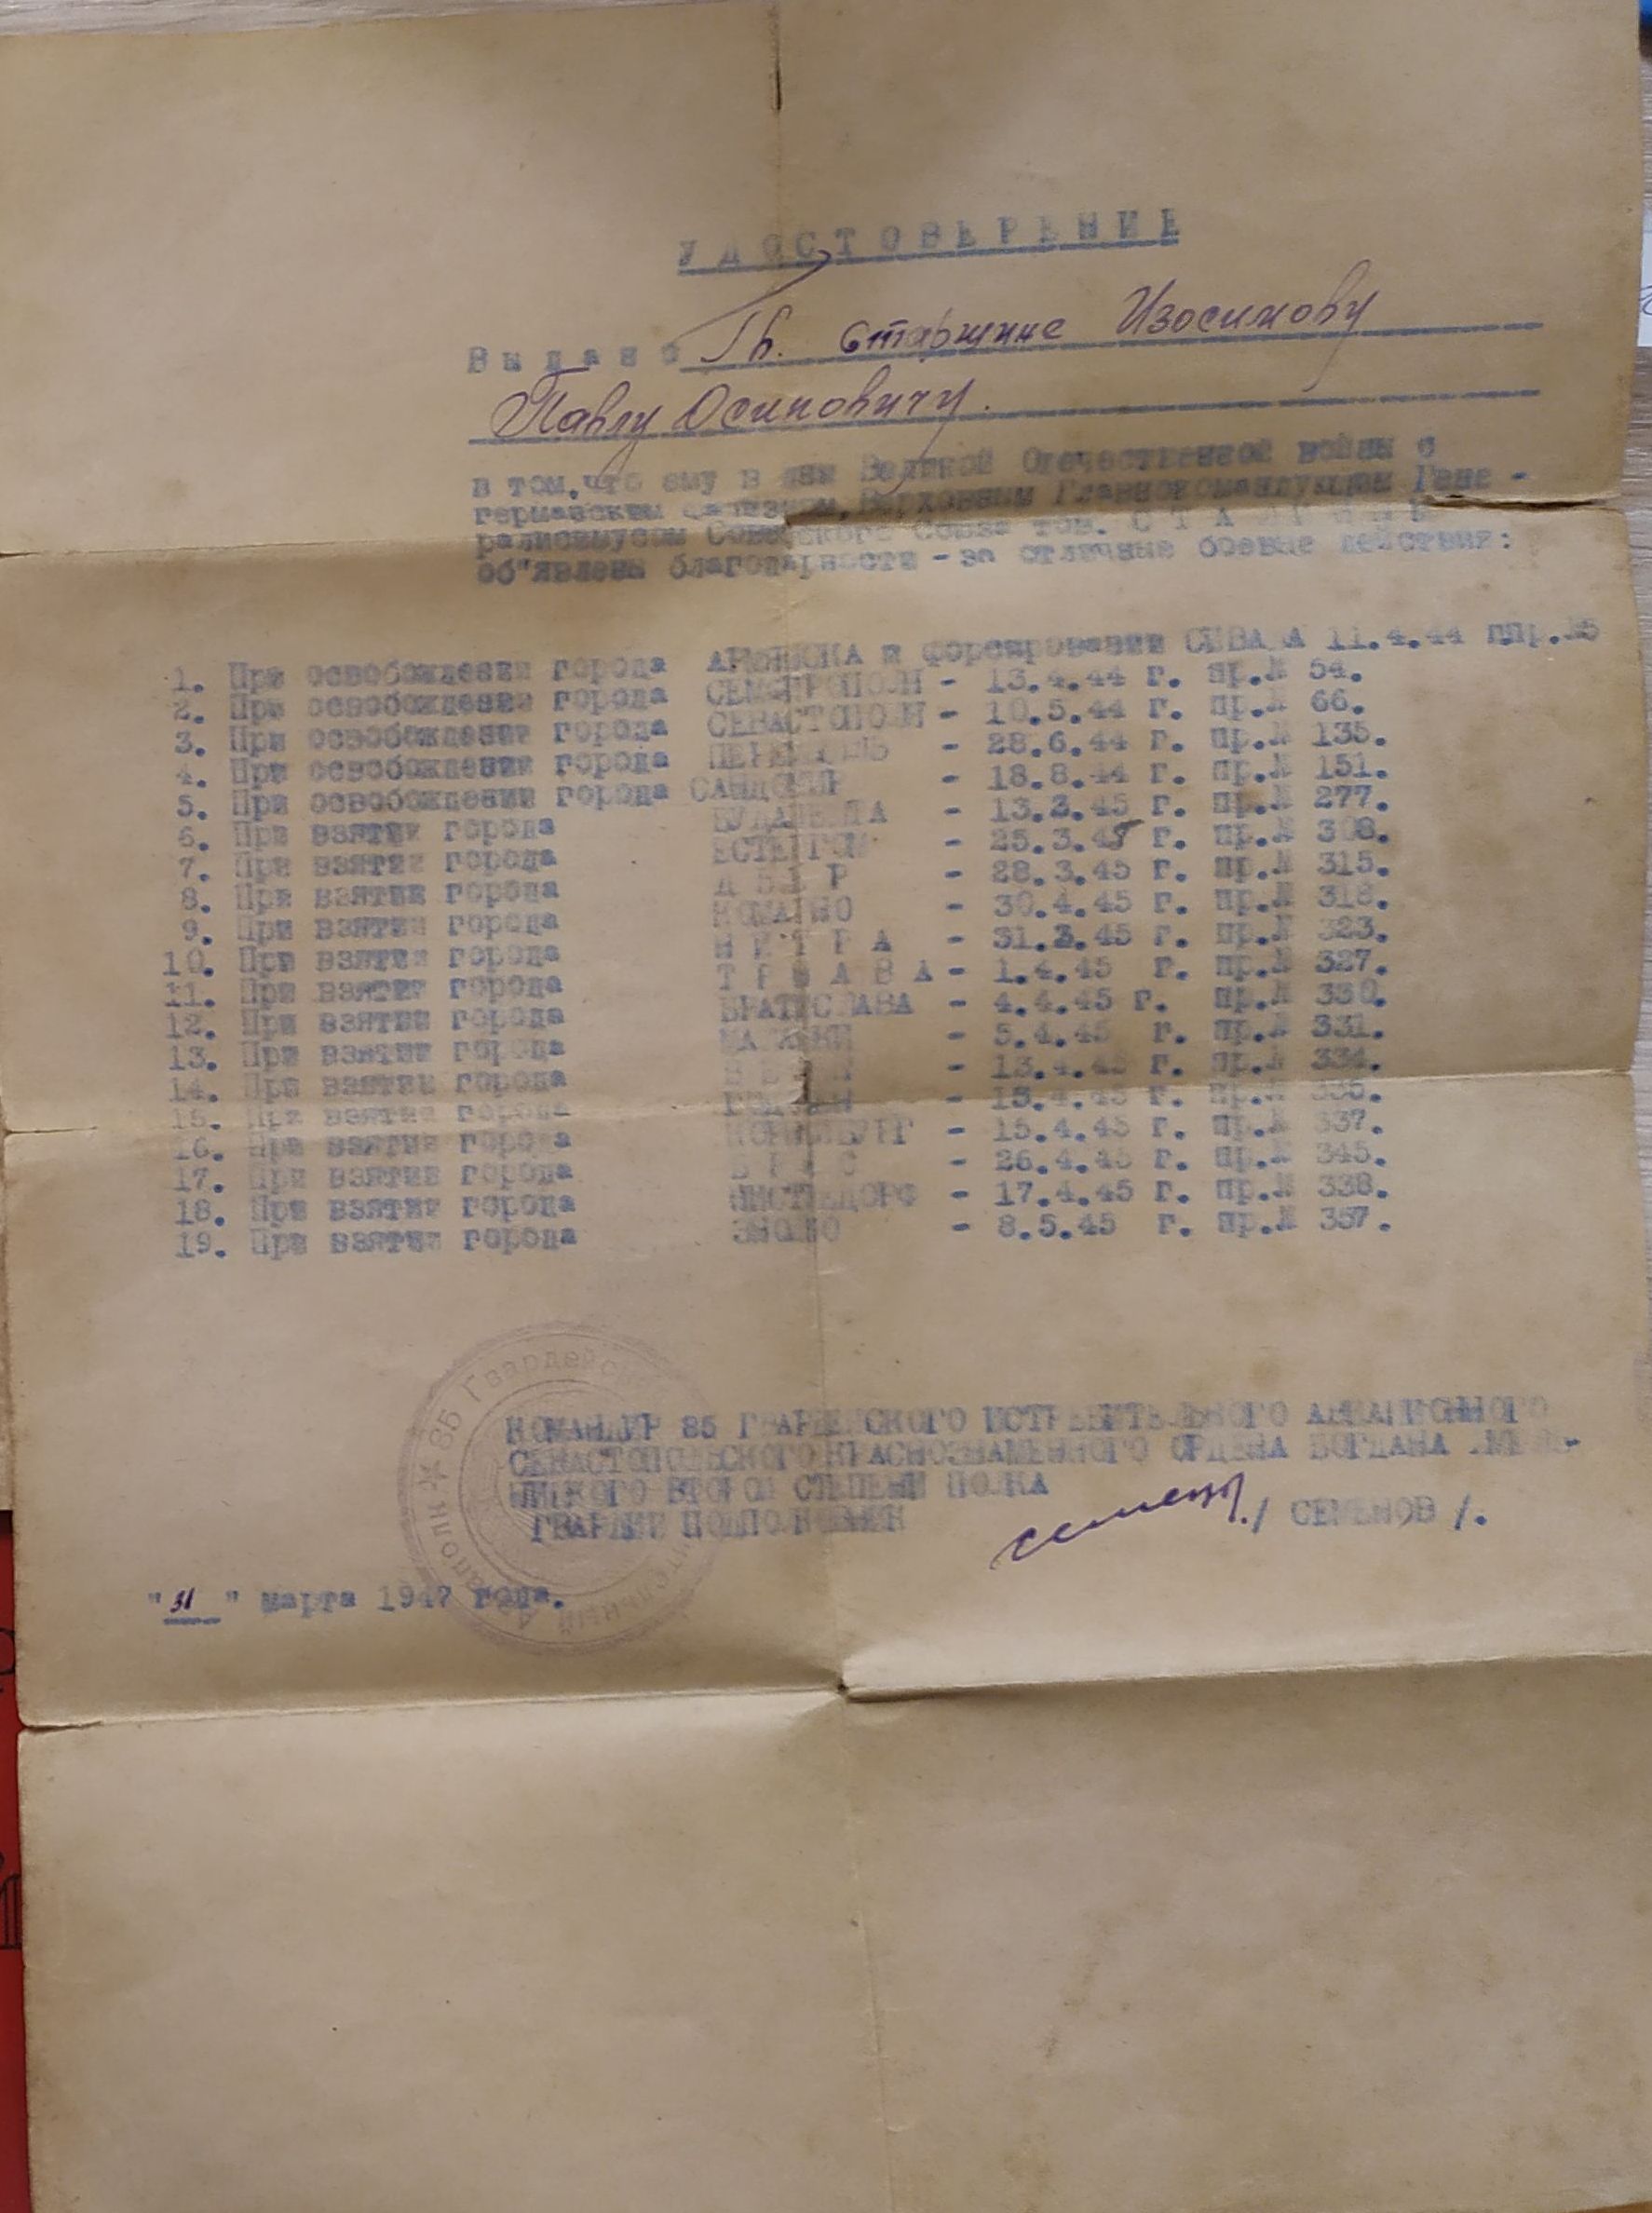 УДОСТОВЕРЕНИЕ
Выдано Гв. старшине Изосимову
Павлу Осиповичу.
в том, что ему в дни Великой Отечественной войны с
германским фашизмом, Верховным Главнокомандующим Гене -
ралисимусом Советского Союза тов. С Т А Л И Н Ы М
об"явлены благодарности - за отличные боевые действия:
1. При освобождении города АРМЯНСКА и форсировании СИВАША 11.4.44 г.пр.
2. При освобождении города СЕМФЕРОПОЛИ - 13.4.44 г. пр.№ 54.
3. При освобождении города СЕВАСТОПОЛИ - 10.5.44 г. пр.№ 66.
4. При освобождении города ПЕРЕМЫШЛЬ - 28.6.44 г. пр.№ 135.
5. При освобождении города САНДОМИР - 18.8.44 г. пр.№ 151.
6. При взятии города БУДАПЕШТА - 13.2.45 г. пр.№ 277.
7. При взятии города ЕСТЕРГОМ - 25.3.45 г. пр.№ 308.
8. При взятии города - 28.3.45 г. пр.№ 315.
9. При взятии города КОМАРНО - 30.4.45 г. пр.№ 318.
10. При взятии города Н И Т Р А - 31.3.45 г. пр.№ 323.
11. При взятии города Т Р Н А В А - 1.4.45 г. пр.№ 327.
12. При взятии города БРАТИСЛАВА - 4.4.45 г. пр.№ 330.
13. При взятии города МАЛАЦКИ - 5.4.45 г. пр.№ 331.
14. При взятии города В Е Н А - 13.4.45 г. пр.№ 334.
15. При взятии города ГОДОНИН - 13.4.45 г. пр.№ 335.
16. При взятии города КОРНЕЙБУРГ - 15.4.45 г. пр.№ 337.
17. При взятии города Б Р Н О - 26.4.45 г. пр.№ 345.
18. При взятии города МИСТЕЛЬДОРФ - 17.4.45 г. пр.№ 338.
19. При взятии города ЗНОЙМО - 8.5.45 г. пр.№ 357.
КОМАНДИР 85 ГВАРДЕЙСКОГО ИСТРЕБИТЕЛЬНОГО АВИАЦИОННОГО
СЕВАСТОПОЛЬСКОГО КРАСНОЗНАМЕННОГО ОРДЕНА БОГДАНА ХМЕЛЬ-
НИЦКОГО ВТОРОЙ СТЕПЕНИ ПОЛКА
ГВАРДИИ ПОДПОЛКОВНИК Семенов / СЕМЕНОВ /.
"31" марта 1947 года.
85 Гвардейский